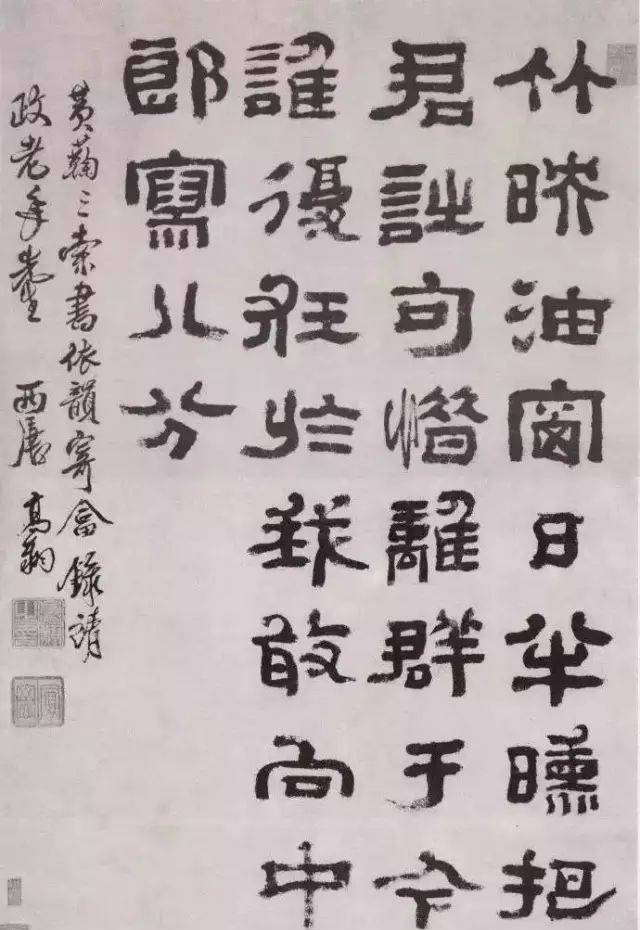 竹映油窗日半曛把
君詩句惜離群于今
誰復狂於我敢向中
郎寫八分
黃鞠三索書依韻寄畣錄請
政老年臺 西唐高翔